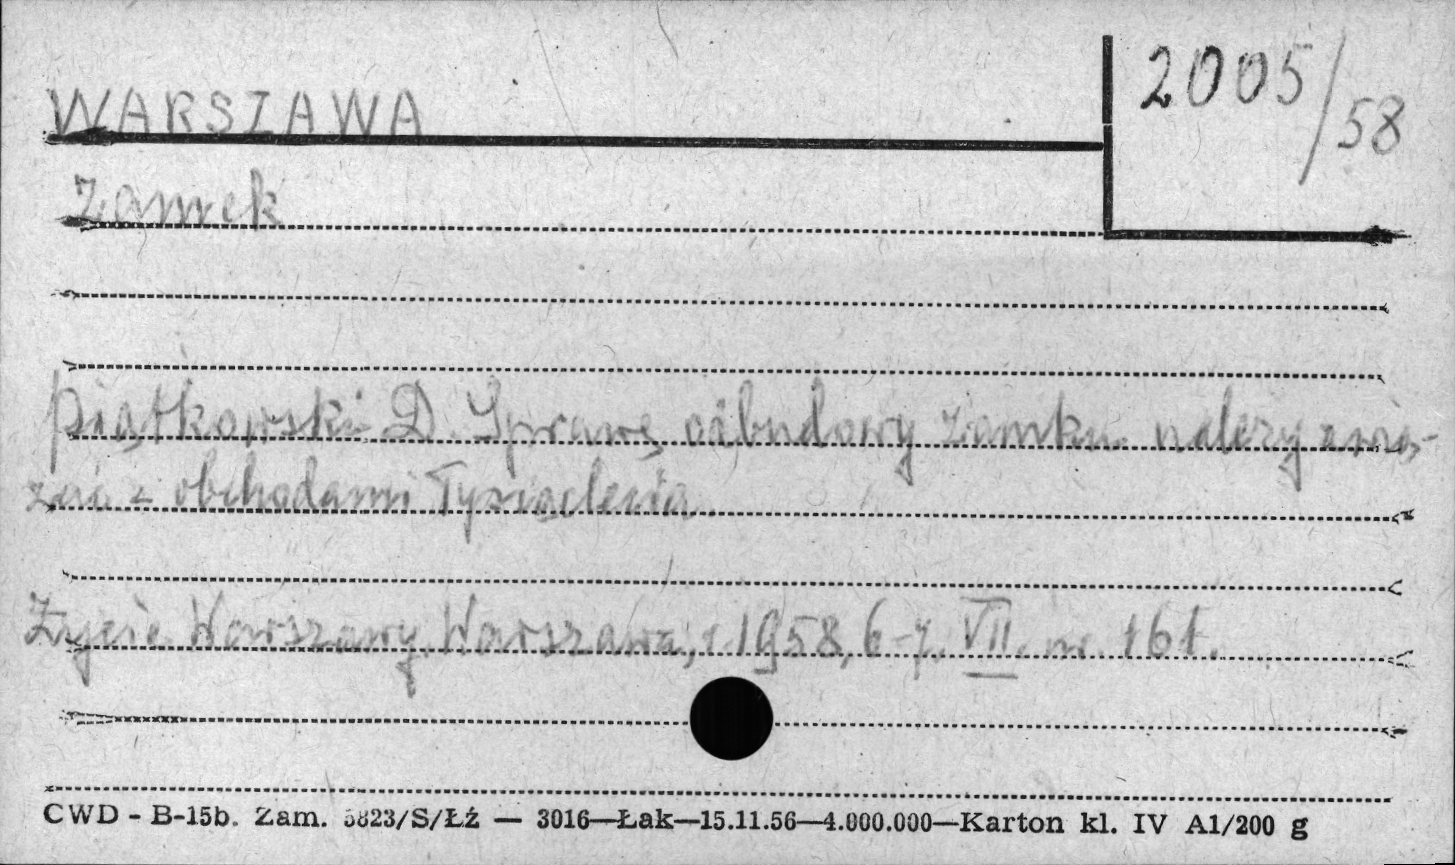 WARSZAWA
2005/58
Zamek
Piątkowski D. Sprawę odbudowy zamku należy zwią-
zać z obchodami Tysiąclecia.
Życie Warszawy. Warszawa, r. 1958, 6-7. VII. nr 161.
CWD - B-15b. Zam. 5823/S/Łź — 3016—Łak—15.11.56—4.000.000—Karton kl. IV A1/200 g